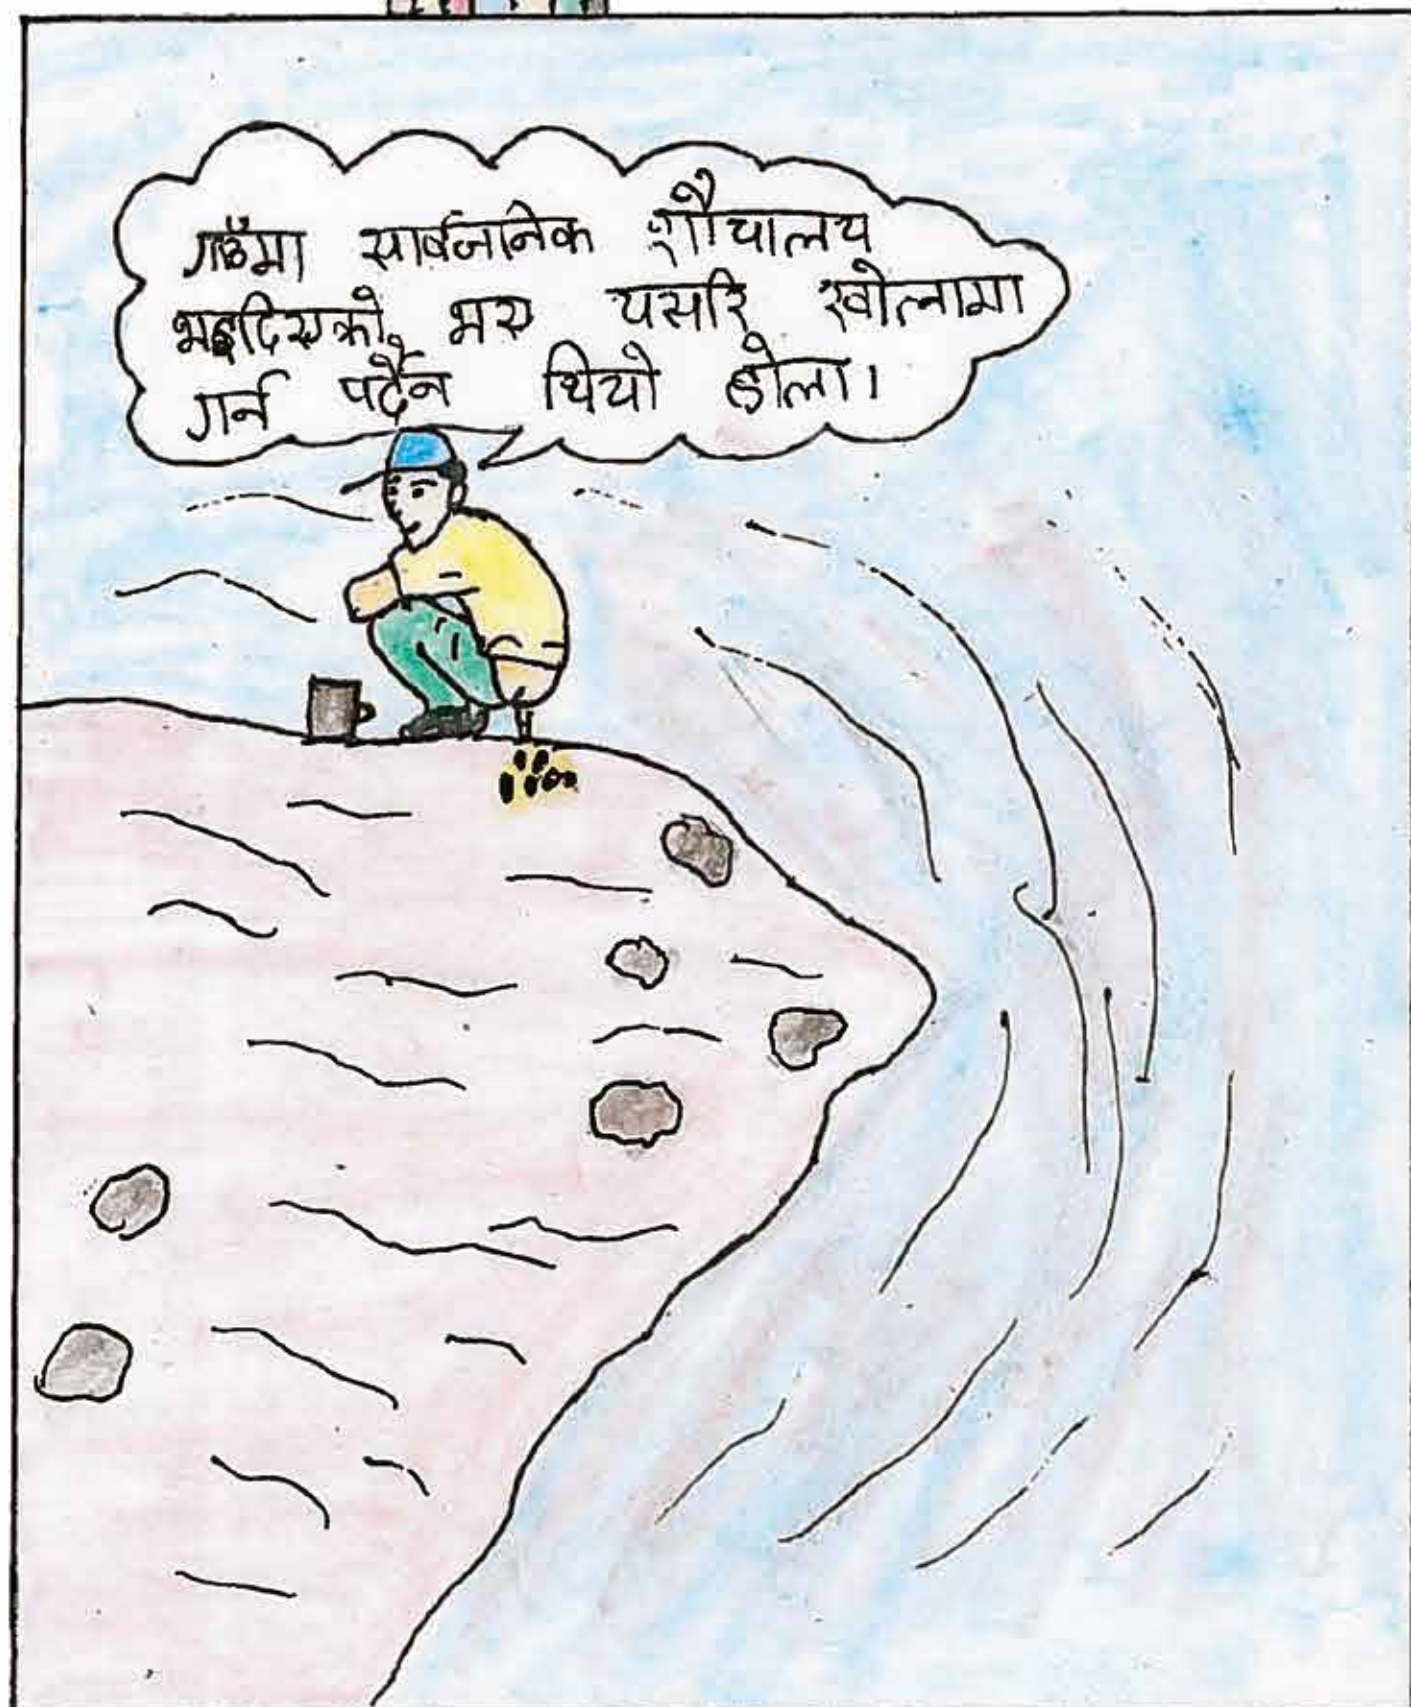 गाउँमा सार्वजानिक शौचालय
भइदिएको भए यसरि खोलामा
गर्न पर्दैन थियो होला।